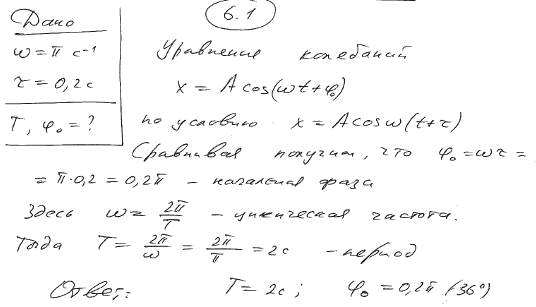 6.1
Дано
ω = π с⁻¹
τ = 0,2 с
T, φ₀ = ?
Уравнение колебаний
x = A cos(ωt + φ₀)
по условию x = A cos ω(t + τ)
Сравнивая получим, что φ₀ = ωτ =
= π·0,2 = 0,2π – начальная фаза
Здесь ω = 2π/T – циклическая частота.
Тогда T = 2π/ω = 2π/π = 2с – период
Ответ: T = 2с; φ₀ = 0,2π (36°)